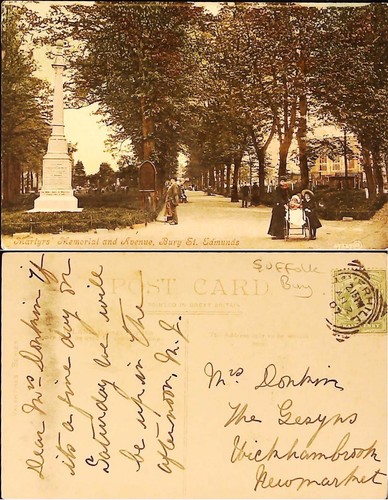 Martyrs Memorial and Avenue, Bury St. Edmunds
POST CARD
SUFFOLK
Bury
Dear Mrs Donkin if
it's a fine day on
Saturday we will
be up in the
afternoon,
Mrs Donkin
The Gesyns
Wickhambrook
Newmarket